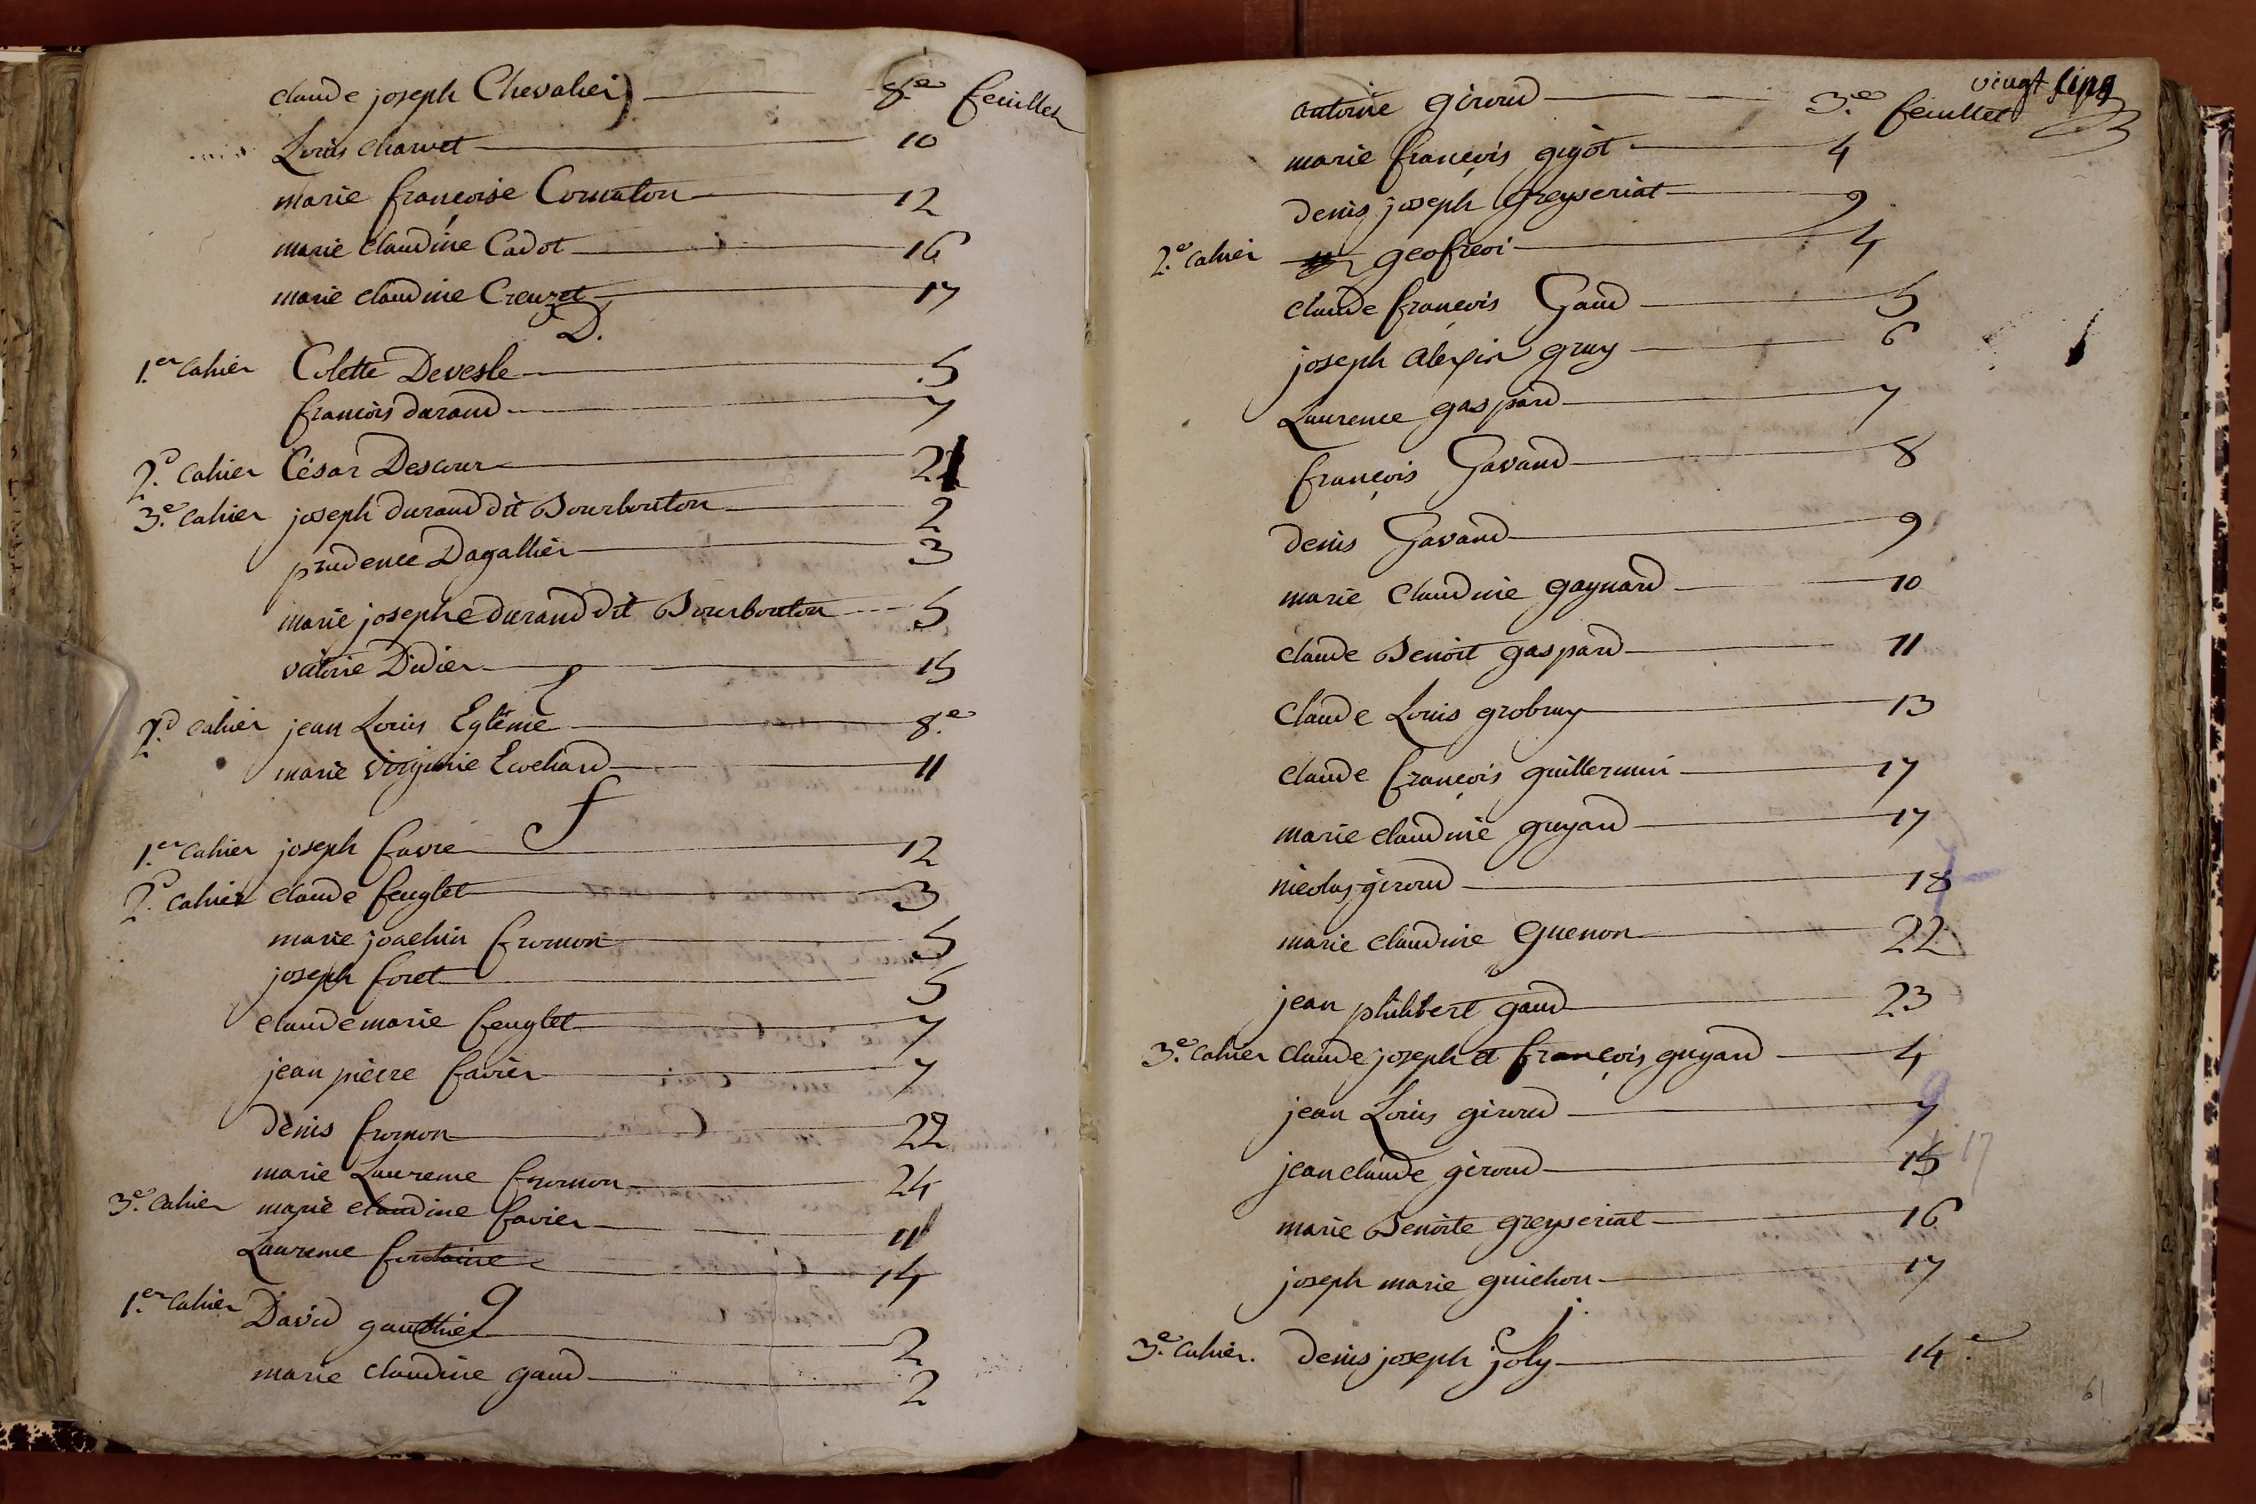 claude joseph Chevalier 8.e feuillet
Louis charvet 10
marie françoise Cornaton 12
marie claudine Cadot 16
marie claudine Creuzet 17
D.
1.er cahier Colette Devesle 5
françois durand 7
2.d cahier César Descour 21
3.e cahier joseph durand dit Bourbouton 2
prudence Dagallier 3
marie josephe durand dit Bourbouton 5
victoire Didier 15
E
2.d cahier jean Louis Eglême 8.e
marie virginie Ewchard 11
f
1.er cahier joseph favre 12
2.d cahier claude feuglet 3
marie joachin fromon 5
joseph foret 5
claude marie feuglet 7
jean pierre favier 7
denis fromon 22
marie Laurence fromon 24
3.e cahier marie claudine favier 11
Laurence fontaine 14
g
1.er cahier David gauthier 2
marie claudine gaud 2
vingt cinq
antoine giroud 3.e feuillet
marie françois gigot 4
denis joseph greyseriat 9
2.e cahier geofreoi 4
claude françois Gaud 5
joseph alexis gruy 6
Laurence gaspard 7
françois Gavand 8
denis Gavand 9
marie claudine gaynard 10
claude Benoit gaspard 11
claude Louis grobruy 13
claude françois guillermin 17
marie claudine guyard 17
nicolas giroud 18
marie claudine guenon 22
jean philibert gaud 23
3.e cahier claude joseph et françois guyard 4
jean Louis giroud 7
jean claude giroud 15 17
marie Benoite greyseriat 16
joseph marie guichon 17
j.
3.e cahier. denis joseph joly 14.e
61